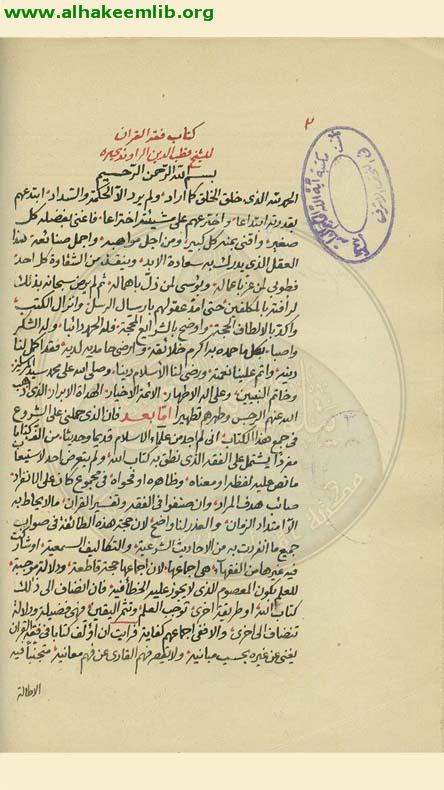 www.alhakeemlib.org
٢
كتاب فقه القران
للشيخ قطب الدين الراوندي
بسم الله الرحمن الرحيم
الحمد لله الذي خلق الخلق كما اراد ولم يرد الا الحكمة والسداد ابتدعهم
بقدرته ابتداعا واخترعهم على مشيته اختراعا فاغنى بفضله كل
صغير واقنى بمنه كل كبير ومن اجل مواهبه واجمل صنائعه هذا
العقل الذي يدرك به سعادة الابد وينقذ من الشقاوة كل احد
فطوبى لمن عز باعماله وبؤسى لمن ذل باهماله ثم لم يرض سبحانه بذلك
لرأفته بالمكلفين حتى امد عقولهم بارسال الرسل وانزال الكتب
واكد بالالطاف الحجة واوضح بالشرايع المحجة فله الحمد دائما وله الشكر
واصبا بكل ما حمده به اكرم خلائقه وارضى حامديه لديه فقد اكمل لنا
دينه واتم علينا نعمته ورضي لنا الاسلام دينا وصلى الله على محمد سيد المرسلين
وخاتم النبيين وعلى اله الاطهار الائمة الاخيار الهداة الابرار الذين اذهب
الله عنهم الرجس وطهرهم تطهيرا اما بعد فان الذي حملني على الشروع
في جمع هذا الكتاب اني لم اجد من علماء الاسلام قديما وحديثا من الف كتابا
مفردا يشتمل على الفقه الذي نطق به كتاب الله ولم يتعرض احد لاستيعاب
ما نص عليه لفظه او معناه وظاهره او فحواه في مجموع كان على الانفراد
صائب هدف المراد وان صنفوا في الفقه وتفسير القران ما لا يحاط به
الا امتداد الزمان والعذر لنا واضح لان حجة هذه الطائفة في صواب
جميع ما انفردت به من الاحاديث الشرعية والتكاليف السمعية او شاركت
فيه غيرها من الفقهاء هي اجماعها لان اجماعها حجة قاطعة ودلالة موجبة
للعلم بكون المعصوم الذي لا يجوز عليه الخطأ فيه فان انضاف الى ذلك
كتاب الله او طريقة اخرى توجب العلم وتثمر اليقين فهي فضيلة ودلالة
تنضاف الى اخرى والا ففي اجماعهم كفاية فرايت ان اؤلف كتابا في فقه القران
يغني عن غيره بحسب مبانيه ولا يقصر فهم القارئ عن فهم معانيه متجنبا فيه
الاطالة